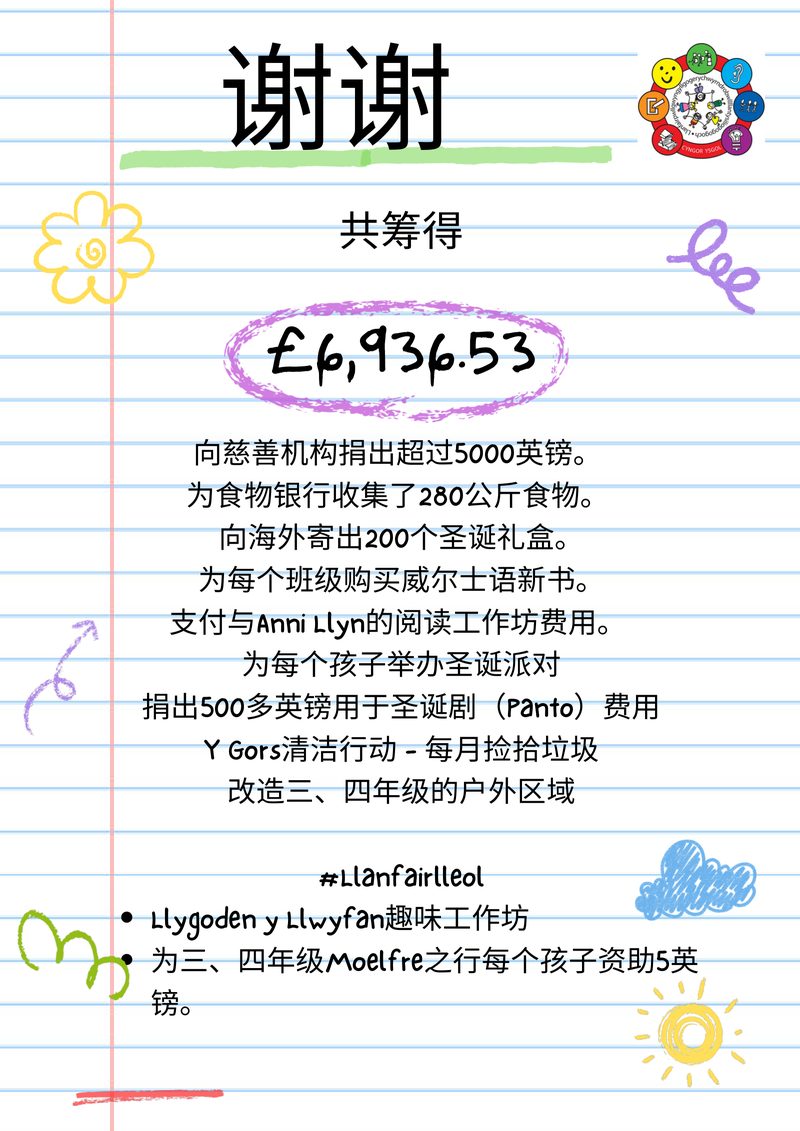 谢谢
CYNGOR YSGOL
共筹得
£6,936.53
向慈善机构捐出超过5000英镑。
为食物银行收集了280公斤食物。
向海外寄出200个圣诞礼盒。
为每个班级购买威尔士语新书。
支付与Anni Llyn的阅读工作坊费用。
为每个孩子举办圣诞派对
捐出500多英镑用于圣诞剧（Panto）费用
Y Gors清洁行动 - 每月捡拾垃圾
改造三、四年级的户外区域
#Llanfairlleol
Llygoden y Llwyfan趣味工作坊
为三、四年级Moelfre之行每个孩子资助5英
镑。